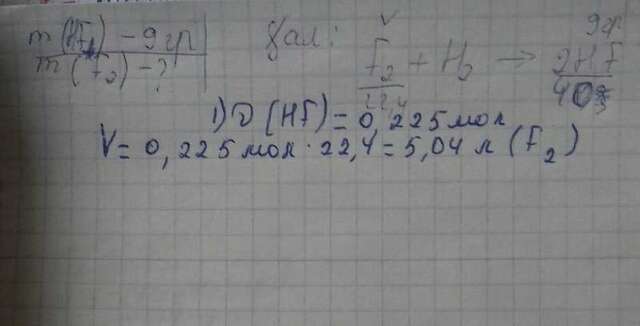 m(HF) - 9 гр
m(F₂) - ?
V
9 гр
F₂ + H₂ → 2HF
22,4
40
1) ν(HF) = 0,225 мол
V = 0,225 мол · 22,4 = 5,04 л (F₂)